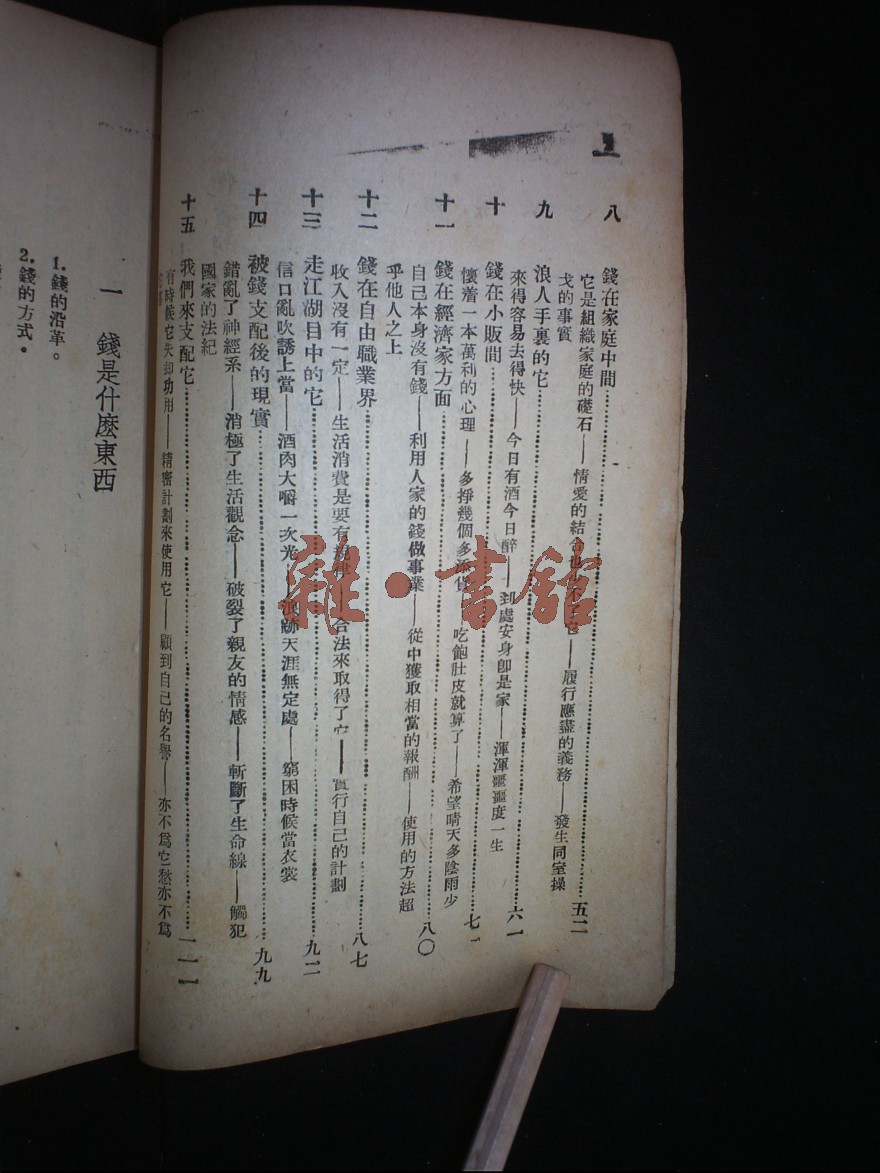 八 錢在家庭中間 五二
它是組織家庭的礎石——情愛的結合也 不了它——履行應盡的義務——發生同室操
戈的事實
九 浪人手裏的它 六一
來得容易去得快——今日有酒今日醉——到處安身卽是家——渾渾噩噩度一生
十 錢在小販間 七一
懷着一本萬利的心理——多掙幾個多添貨——吃飽肚皮就算了——希望晴天多陰雨少
十一 錢在經濟家方面 八〇
自己本身沒有錢——利用人家的錢做事業——從中獲取相當的報酬——使用的方法超
乎他人之上
十二 錢在自由職業界 八七
收入沒有一定——生活消費是要有規律——合法來取得了它——實行自己的計劃
十三 走江湖目中的它 九二
信口亂吹誘上當——酒肉大嚼一次光——浪跡天涯無定處——窮困時候當衣裳
十四 被錢支配後的現實 九九
錯亂了神經系——消極了生活觀念——破裂了親友的情感——斬斷了生命線——觸犯
國家的法紀
十五 我們來支配它 一一一
有時候它失却功用——精密計劃來使用它——顧到自己的名譽——亦不爲它愁亦不爲
一 錢是什麼東西
1.錢的沿革。
2.錢的方式。
雜·書館